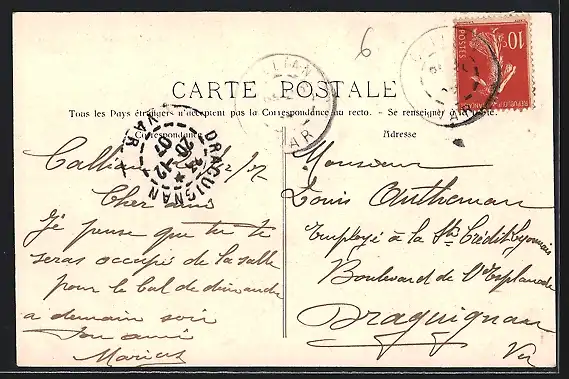 6
CARTE POSTALE
Tous les Pays étrangers n'acceptent pas la Correspondance au recto. - Se renseigner à la Poste.
Correspondance
Adresse
10c
POSTES
DRAGUIGNAN
20-12
07
VAR
CALLIAN
VAR
Callian
Cher ami
Je pense que tu te
seras occupé de la salle
pour le bal de dimanche
a demain soir
Ton ami
Marius
Monsieur
Louis Autheman
Employé à la Sté Crédit Lyonnais
Boulevard de l'Esplanade
Draguignan
Var